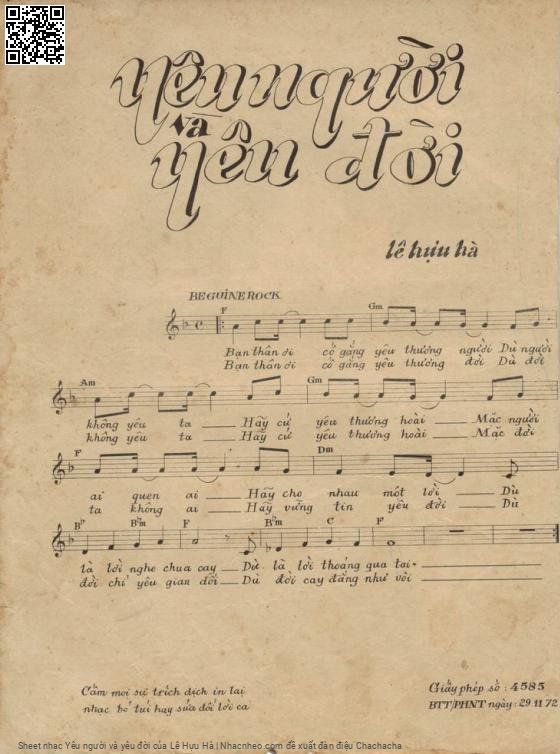 Yêu người
và
yêu đời
lê hựu hà
BEGUINE ROCK
F Gm
Bạn thân ơi cố gắng yêu thương người Dù người
Bạn thân ơi cố gắng yêu thương đời Dù đời
Am Gm
không yêu ta Hãy cứ yêu thương hoài Mặc người
không yêu ta Hãy cứ yêu thương hoài Mặc đời
F Dm
ai quen ai Hãy cho nhau một lời Dù
ta không ai Hãy vững tin yêu đời Dù
Bb Bbm F Bbm C F
là lời nghe chua cay Dù là lời thoảng qua tai
đời chỉ yêu gian dối Dù đời cay đắng như vôi
Cấm mọi sự trích dịch in lại
nhạc bố túi hay sửa đổi lời ca
Giấy phép số : 4585
BTT/PHNT ngày : 29.11.72
Sheet nhạc Yêu người và yêu đời của Lê Hựu Hà | Nhacnheo.com đề xuất đàn điệu Chachacha